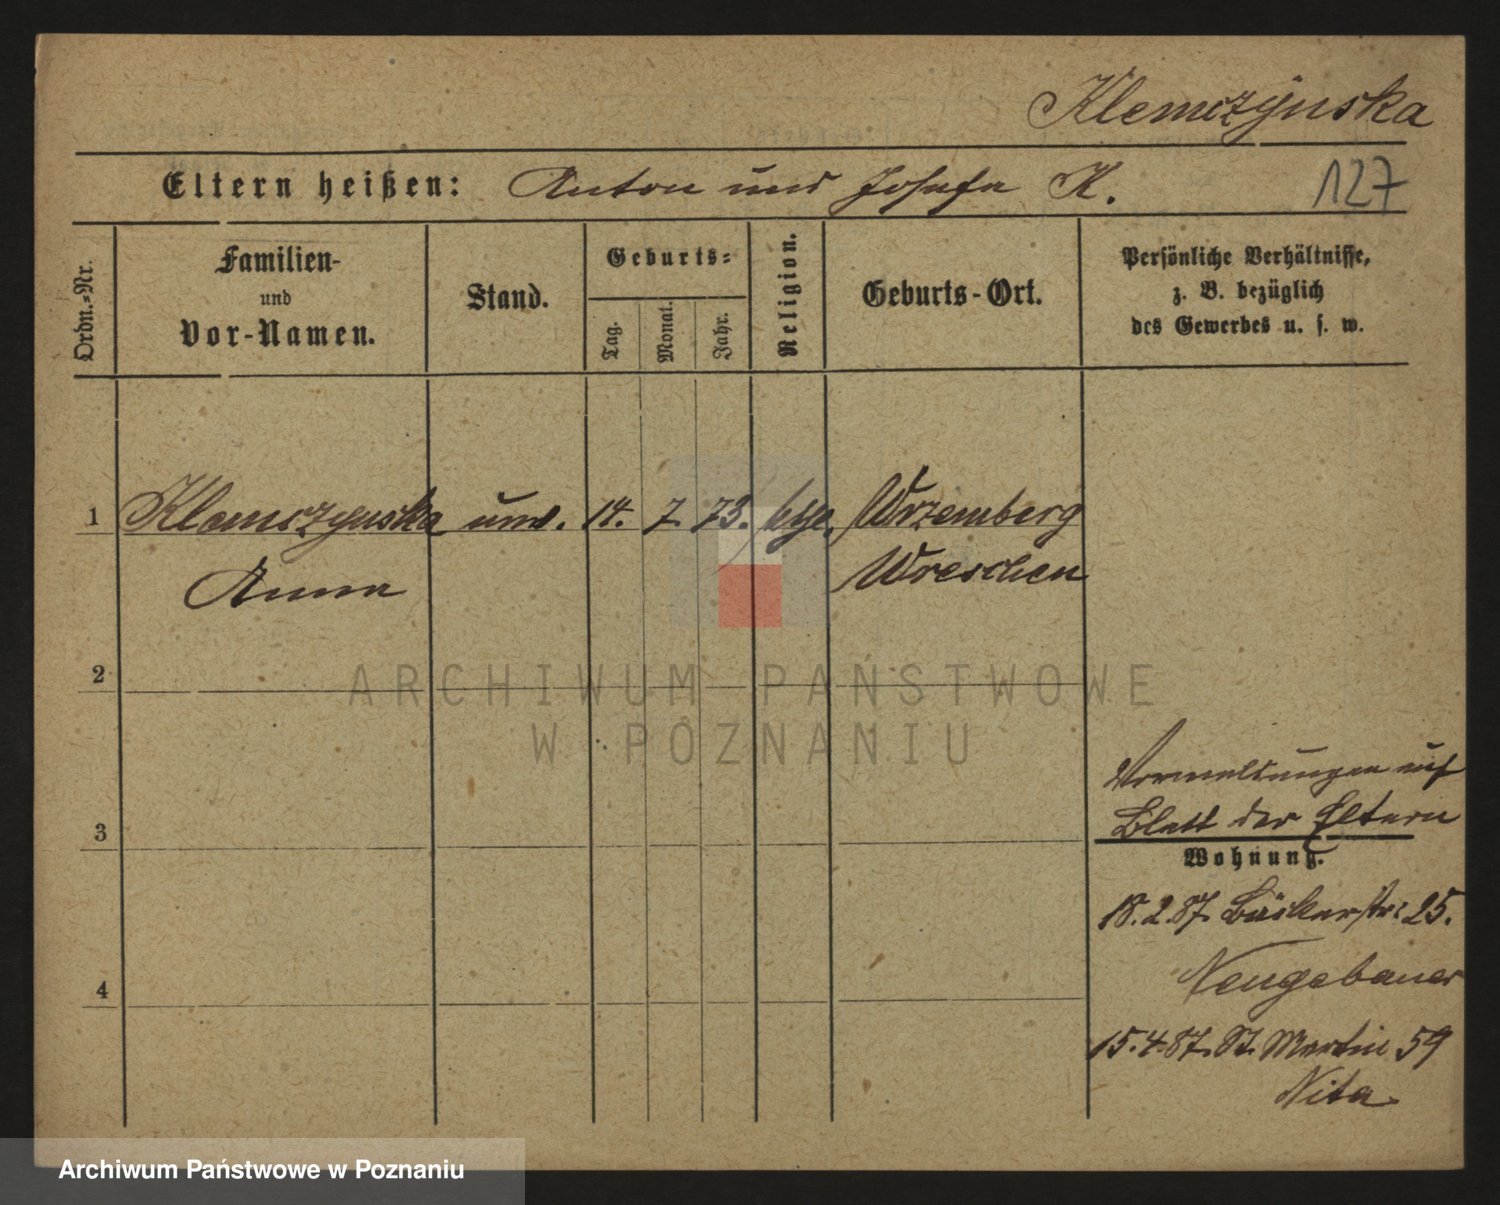 Klemczynska
Eltern heißen: Anton und Josefa K. 127
Ordn.-Nr.
Familien-
und
Vor-Namen.
Stand.
Geburts-
Tag.
Monat.
Jahr.
Religion.
Geburts-Ort.
Persönliche Verhältnisse,
z. B. bezüglich
des Gewerbes u. s. w.
1 Klemczynska unv. 14. 7. 73. kth. Wrzemberg
Anna Wreschen
2
ARCHIWUM PAŃSTWOWE
W POZNANIU
auf
3 Blatt der Eltern
Wohnung.
18.2.87. Bäckerstr: 25.
Neugebauer
4
15.4.87. St. Martin 59
Nita
Archiwum Państwowe w Poznaniu